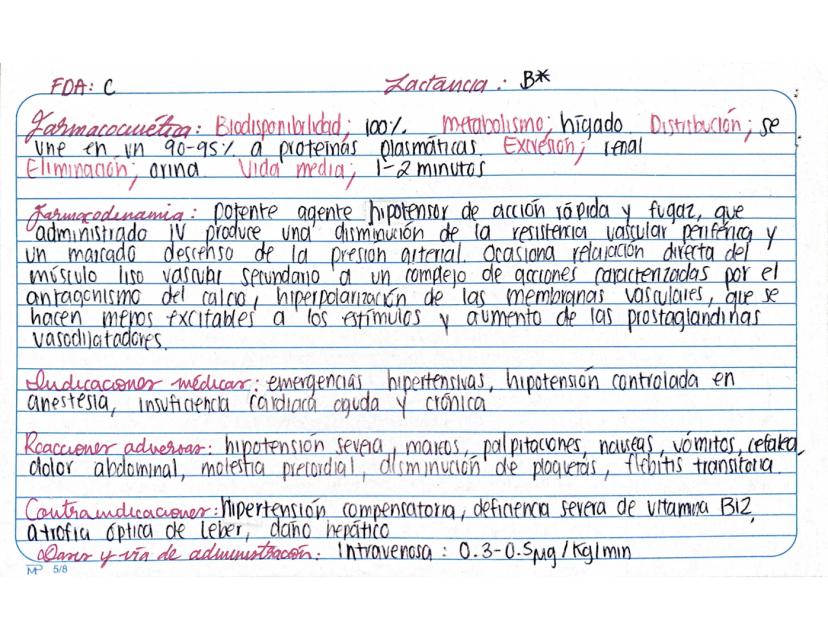 FDA: C Lactancia: B*
Farmacocinética: Biodisponibilidad; 100%. Metabolismo; hígado. Distribución; se
une en un 90-95% a proteínas plasmáticas. Excresión; renal
Eliminación; orina. Vida media; 1-2 minutos
Farmacodinamia: potente agente hipotensor de acción rápida y fugaz, que
administrado IV produce una disminución de la resistencia vascular periférica y
un marcado descenso de la presion arterial. Ocasiona relajación directa del
músculo liso vascular secundario a un complejo de acciones caracterizadas por el
antagonismo del calcio, hiperpolarización de las membranas vasculares, que se
hacen menos excitables a los estímulos y aumento de las prostaglandinas
vasodilatadores.
Indicaciones médicas: emergencias hipertensivas, hipotensión controlada en
anestesia, insuficiencia cardiaca aguda y crónica
Reacciones adversas: hipotensión severa, mareos, palpitaciones, nauseas, vómitos, cefalea,
dolor abdominal, molestia precordial, disminución de plaquetas, flebitis transitoria
Contraindicaciones: Hipertensión compensatoria, deficiencia severa de vitamina B12,
atrofia óptica de Leber, daño hepático
Dosis y vía de administración: Intravenosa: 0.3-0.5µg/Kg/min
MP 5/8